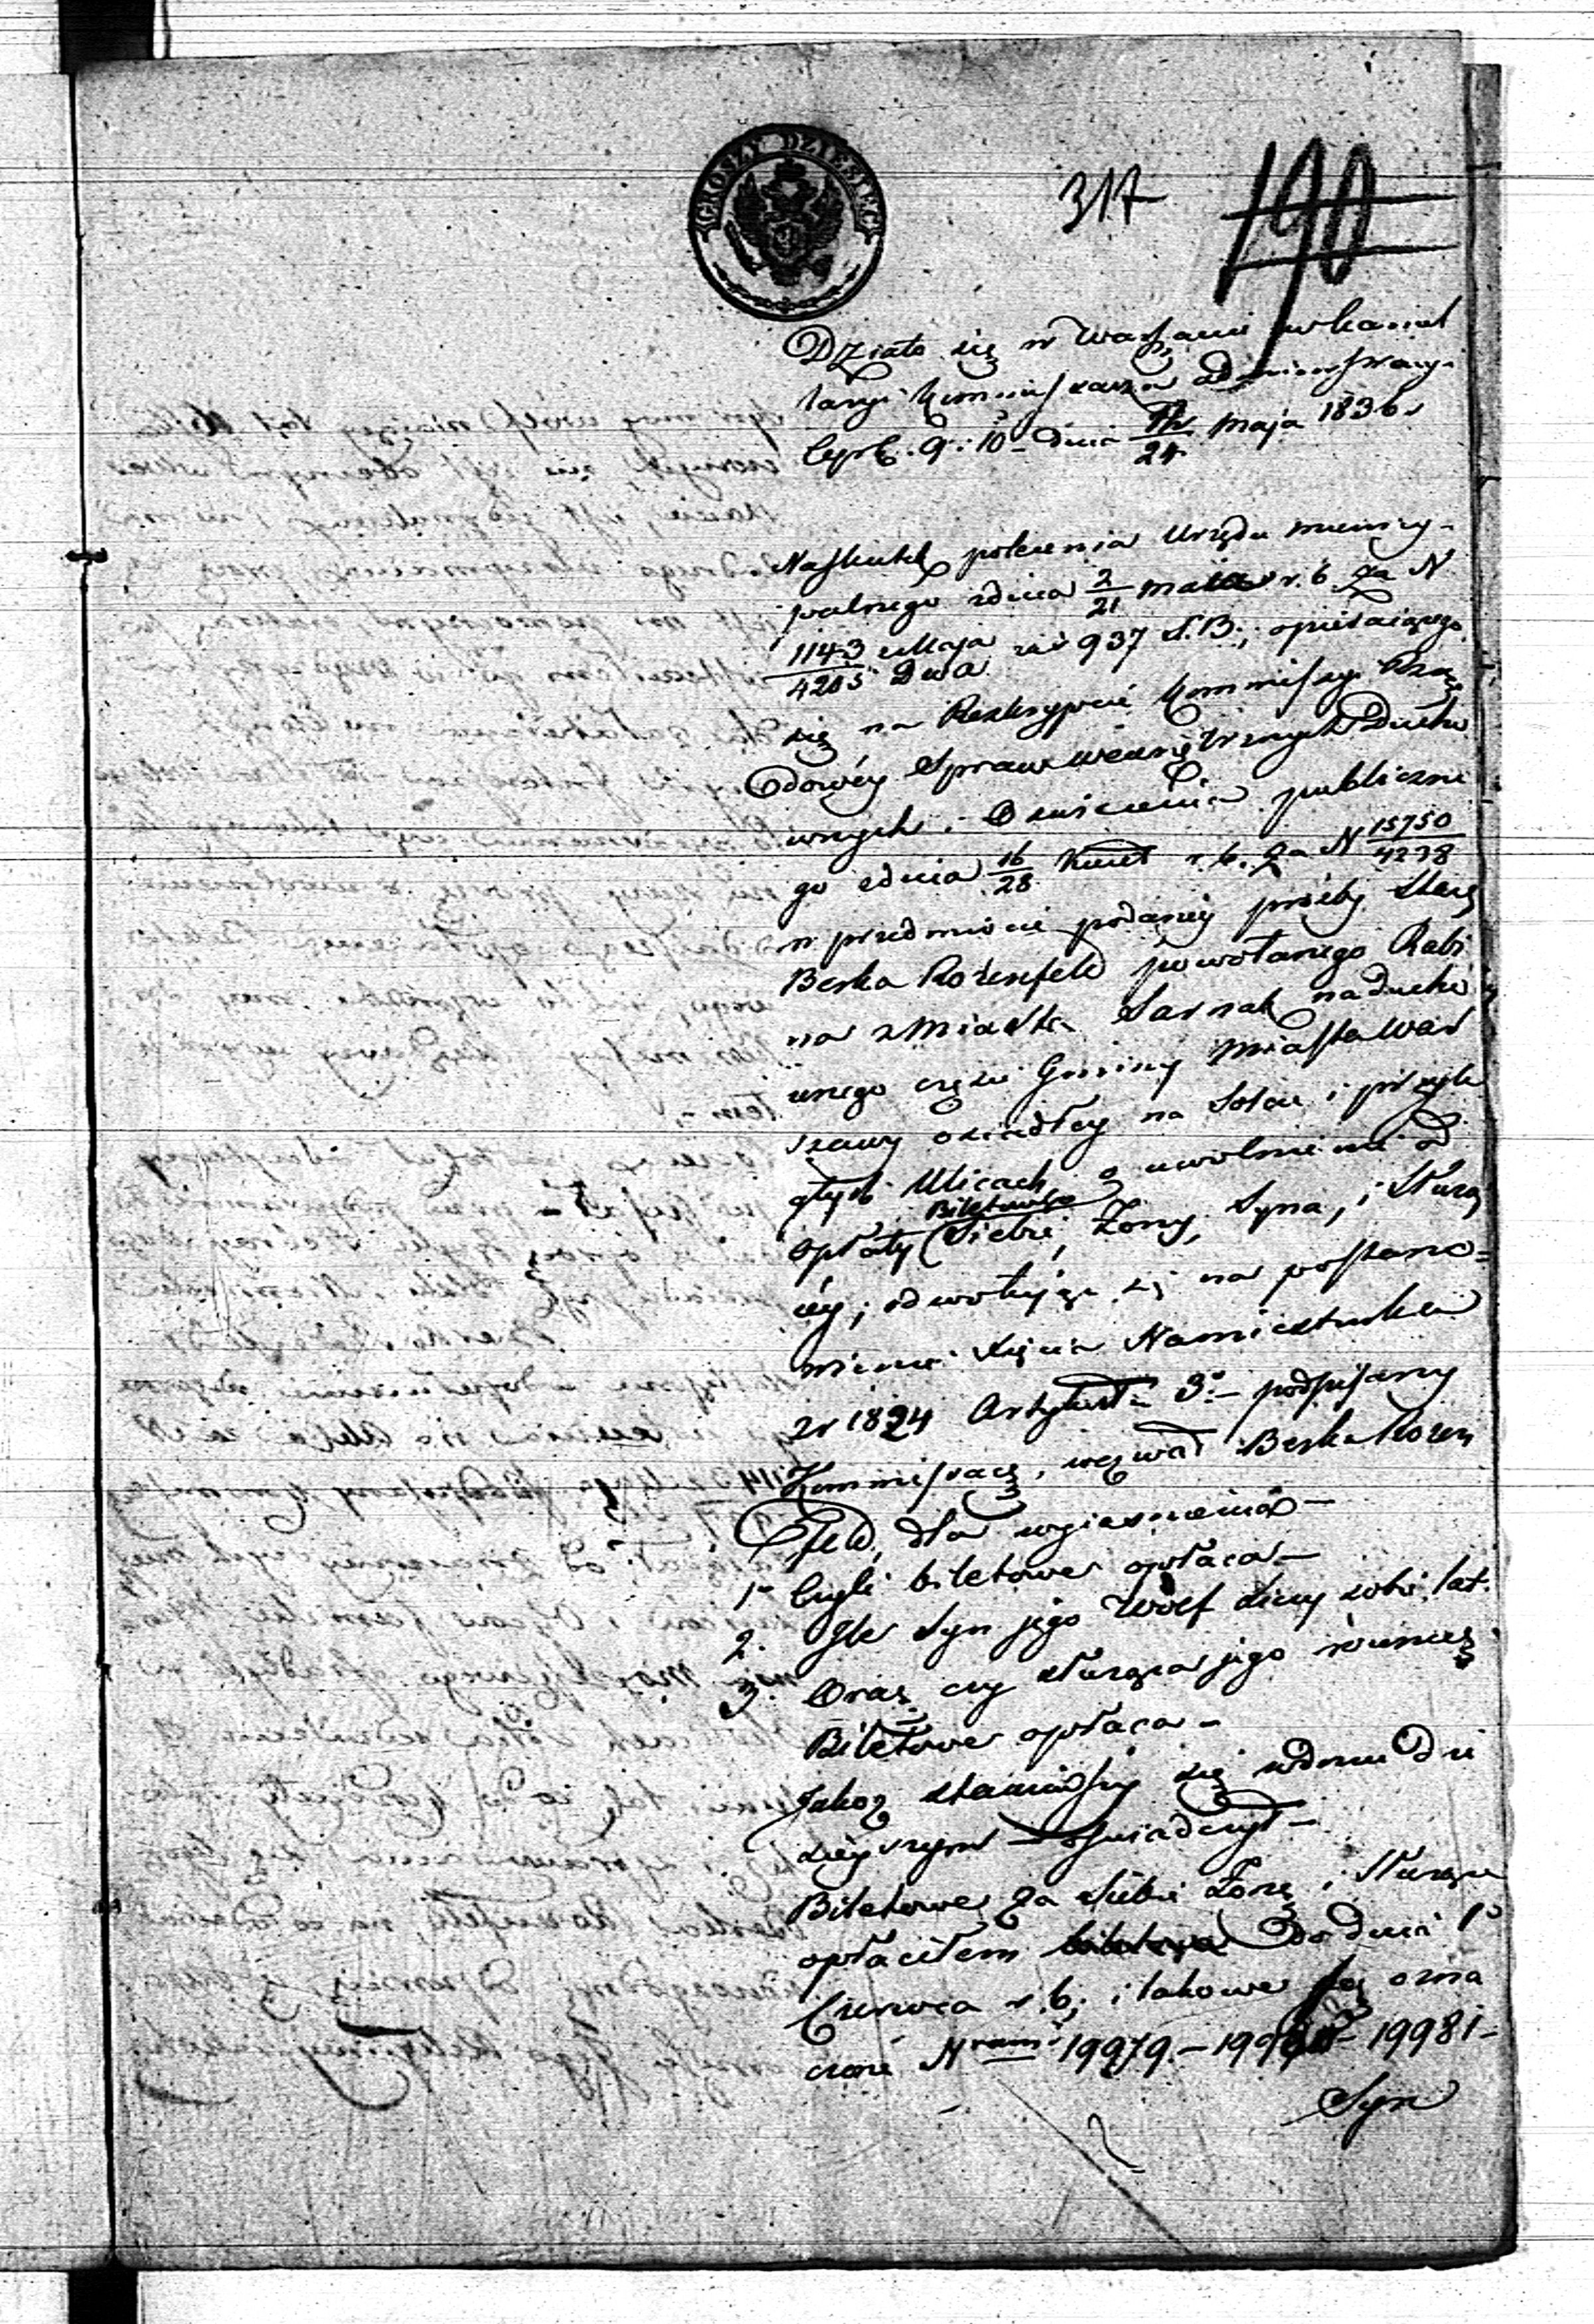 GROSZY DZIESIĘĆ
317
190
Działo się w Warszawie w Kancel
laryi Kommissarza Administracyi
Cyrk. 9. i 10 - dnia 12/24 Maja 1836 r
Naskutek polecenia Urzędu Municy-
palnego zdnia 2/21 r. b za N
1143/4205 Maja Dwa 937 S. B.; opieraiącego
się na Reskrypcie Kommissyi Rzą
dowéy Spraw Wewnętrznych Ducho
wnych i Oświecenia publiczne
go zdnia 16/28 Kwiet r. b. Za N 15750/4238
w przedmiocie podanéy prośby Starz
Berka Rozenfeld powołanego Rabi
na z Miasta Sarnak na Ducho
wnego części Gminy Miasta War
szawy osiadłey na Solcu i przyle
głych Ulicach, o uwolnienie od
Biletowego
opłaty Siebie, Żony, Syna, i Służą
cey; odwołując się na postano=
wienie Xięcia Namiestnika
zr 1824 Artykułu 3. - podpisany
Kommissarz, wezwał Berka Rozen
feld, dla wyiaśnienia -
1 Czyli biletowe opłaca -
2. Ile Syn jego Wolf liczy sobie lat.
3. Oraz czy Służąca jego również
Biletowe opłaca -
Jakoż stawiwszy się w dniu dzi
sieyszym oświadczył -
Biletowe za Siebie Żonę i Służącę
opłaciłem do dnia 1
Czerwca r. b; i takowe są ozna
czone Nrami 19979. - 19980 - 19981 -
Syn